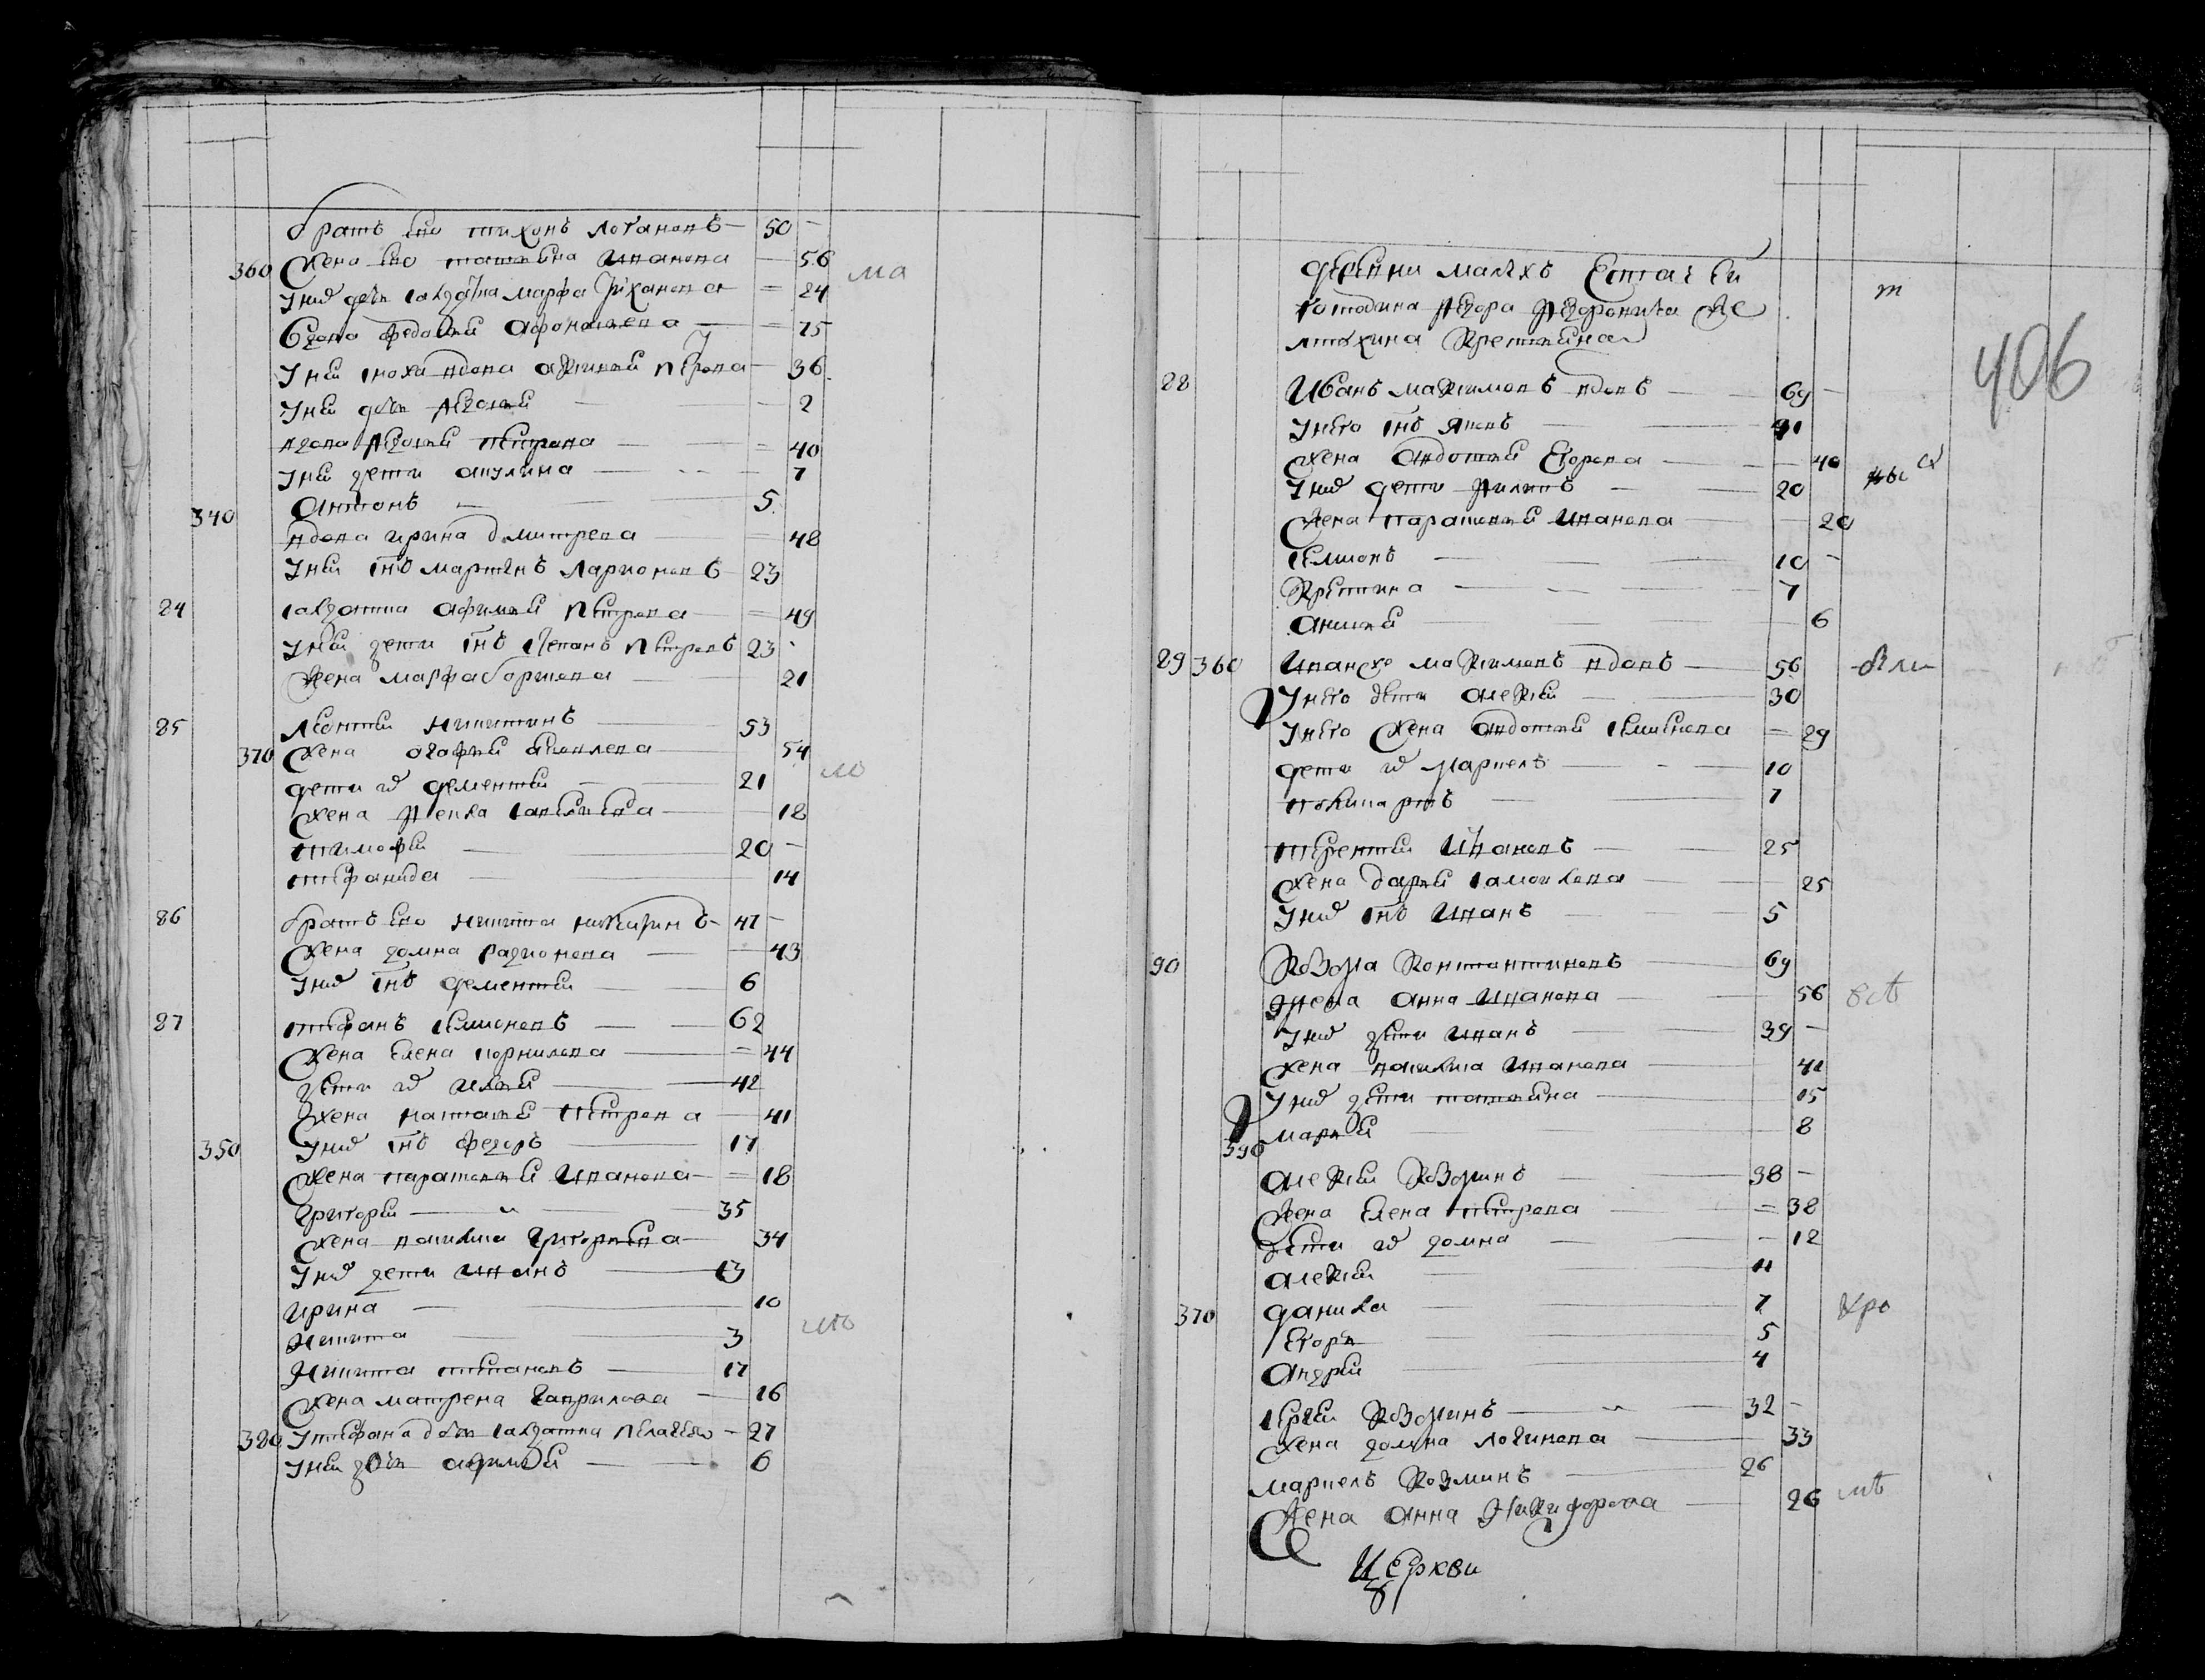 братъ ево тихонъ логановъ 50
360 жена ево татьяна иванова 56
у них дочь салдатка марфа тиханова 24
вдова федосья афонасьева 75
у ней сноха вдова аксинья петрова 36
у ней дочь авдотья 2
вдова авдотья петрова 40
у ней дети акулина 7
340 антонъ 5
вдова ирина дмитрева 48
у ней снъ мартинъ ларионовъ 23
84 салдатка афимья петрова 49
у ней дети снъ степанъ петровъ 23
жена марфа борисова 21
85 леонтей никитинъ 53
370 жена агафья яковлева 54
дети их дементей 21
жена фекла савельева 18
тимофей 20
стефанида 14
86 братъ ево никита никитинъ 47
жена домна радионова 43
у них снъ дементей 6
87 стефанъ семионовъ 62
жена елена корнилова 44
дети их илья 42
жена наталья петрова 41
350 у них снъ федоръ 17
жена парасковья иванова 18
григорей 35
жена василиса григорьева 34
у них дети иванъ 13
ирина 10
никита 3
никита степановъ 17
жена матрена гаврилова 16
380 у стефана дочь салдатка пелагея 27
у ней дочь афимья 6
деревни малыхъ
господина федора федоровича
406
88 Иванъ максимовъ вдовъ 69
у него снъ яковъ 41
жена авдотья егорова 40
у них дети филипъ 20
жена парасковья иванова 20
семионъ 10
анисья 6
89 360 максимовъ вдовъ 56
у него дети алексей 30
у него жена авдотья семионова 29
дети их маркелъ 10
7
терентей ивановъ 25
жена дарья самоилова 25
у них снъ иванъ 5
90 козма константиновъ 69
жена анна иванова 56
у них дети иванъ 39
жена василиса иванова 41
у них дети татьяна 15
390 марья 8
алексей козминъ 38
жена елена петрова 38
дети их домна 12
алексей 11
370 данила 7
егоръ 5
андрей 4
сергей козминъ 32
жена домна логинова 33
маркелъ козминъ 26
жена анна никифорова 26
церкви